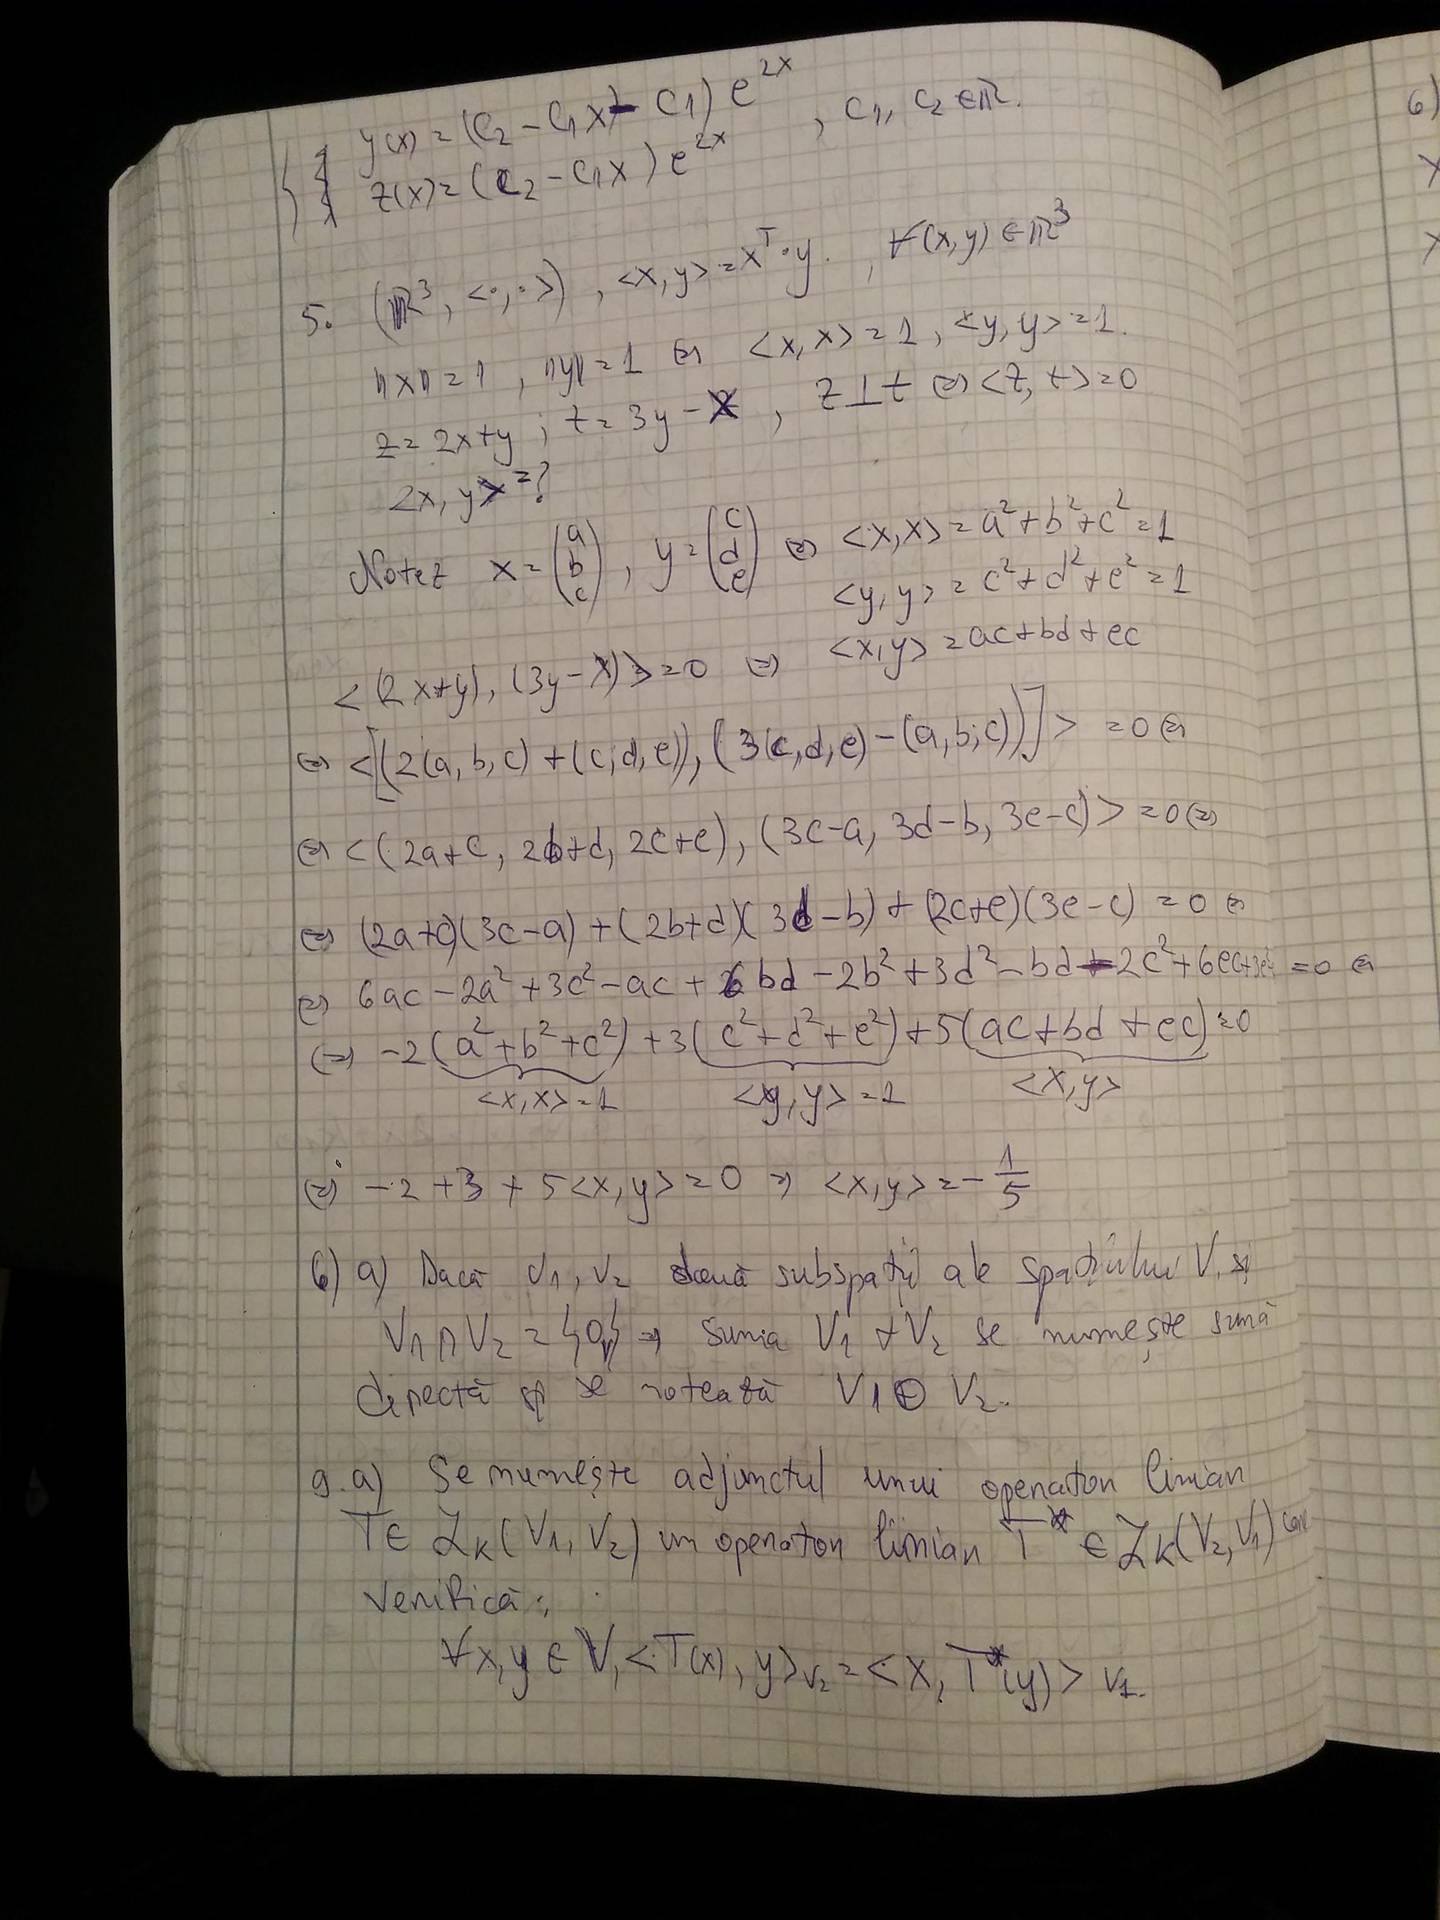 y(x) = (c₂ - c₁x - c₁) e^{2x}
z(x) = (c₂ - c₁x) e^{2x} , c₁, c₂ ∈ ℝ.
5. (ℝ³, <·,·>) , <x,y> = x^T·y. , ∀(x,y) ∈ ℝ³
‖x‖ = 1 , ‖y‖ = 1 (=) <x,x> = 1, <y,y> = 1.
z = 2x+y ; t = 3y - x , z ⊥ t (=) <z,t> = 0
<x,y> = ?
Notez x = (a b c) , y = (c d e) (=) <x,x> = a²+b²+c² = 1
<y,y> = c²+d²+e² = 1
<x,y> = ac+bd+ec
<(2x+y), (3y-x)> = 0 (=)
(=) <[(2(a,b,c) + (c,d,e)), (3(c,d,e) - (a,b,c))]> = 0 (=)
(=) <(2a+c, 2b+d, 2c+e), (3c-a, 3d-b, 3e-c)> = 0 (=)
(=) (2a+c)(3c-a) + (2b+d)(3d-b) + (2c+e)(3e-c) = 0 (=)
(=) 6ac - 2a² + 3c² - ac + 6bd - 2b² + 3d² - bd - 2c² + 6ec + 3e² = 0 (=)
(=) -2(a²+b²+c²) + 3(c²+d²+e²) + 5(ac+bd+ec) = 0
<x,x> = 1 <y,y> = 1 <x,y>
(=) -2 + 3 + 5<x,y> = 0 => <x,y> = -1/5
6) a) Dacă V₁, V₂ două subspații ale spațiului V, și
V₁ ∩ V₂ = {0ᵥ} => Suma V₁ + V₂ se numește sumă
directă și se notează V₁ ⊕ V₂.
9. a) Se numește adjunctul unui operator liniar
T ∈ ℒ_K(V₁, V₂) un operator liniar T* ∈ ℒ_K(V₂, V₁) care
verifică:
∀x,y ∈ V, <T(x), y>_{V₂} = <x, T*(y)>_{V₁}.
6)